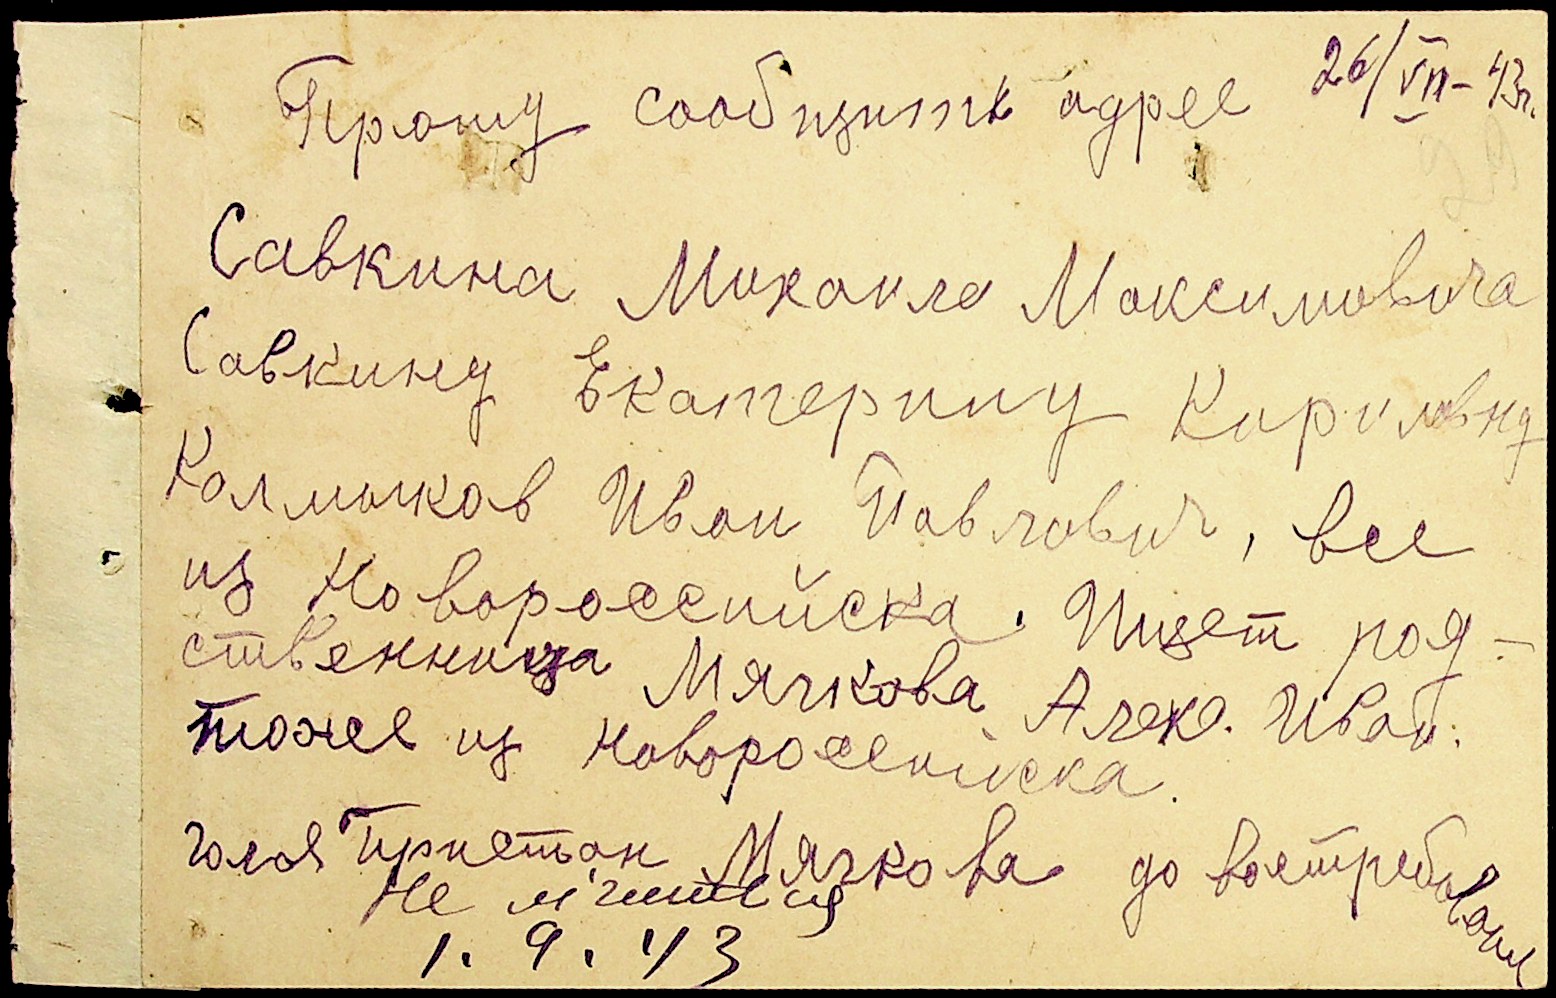 26/VII-43г.
Прошу сообщить адрес
29
Савкина Михаила Максимовича
Савкину Екатерину Кириловну
Колмыков Иван Павлович, все
из Новороссийска. Ищет род-
ственница Мячкова Алекс. Иван.
тоже из Новороссийска.
Пристань Мячкова до востребования
Не
1.9.43